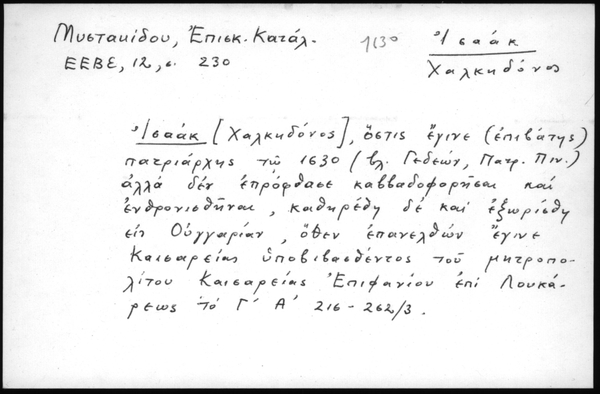 Μυστακίδου, Ἐπισκ. Κατάλ.
ΕΕΒΣ, 12, σ. 230
1630
Ἰσαάκ
Χαλκηδόνος
Ἰσαάκ [Χαλκηδόνος], ὅστις ἔγινε (ἐπιβάτης)
πατριάρχης τῷ 1630 (βλ. Γεδεών, Πατρ. Πιν.)
ἀλλά δέν ἐπρόφθασε καββαδοφορῆσαι καί
ἐνθρονισθῆναι, καθηρέθη δέ καί ἐξωρίσθη
εἰς Οὐγγαρίαν, ὅθεν ἐπανελθών ἔγινε
Καισαρείας ὑποβιβασθέντος τοῦ μητροπο-
λίτου Καισαρείας Ἐπιφανίου ἐπί Λουκά-
ρεως τό Γ' Α' 216 - 262/3.